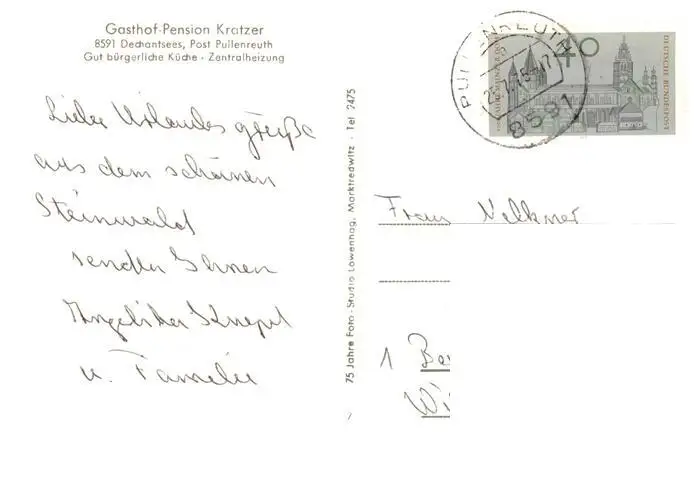 Gasthof-Pension Kratzer
8591 Dechantsees, Post Pullenreuth
Gut bürgerliche Küche · Zentralheizung
Liebe Urlaubsgrüße
aus dem schönen
Steinwald
senden Ihnen
Angelika
u. Familie
75 Jahre Foto-Studio Löwenhag, Marktredwitz · Tel 2475
PULLENREUTH
8591
40
DEUTSCHE BUNDESPOST
Frau Nelkner
1 Be
Wi